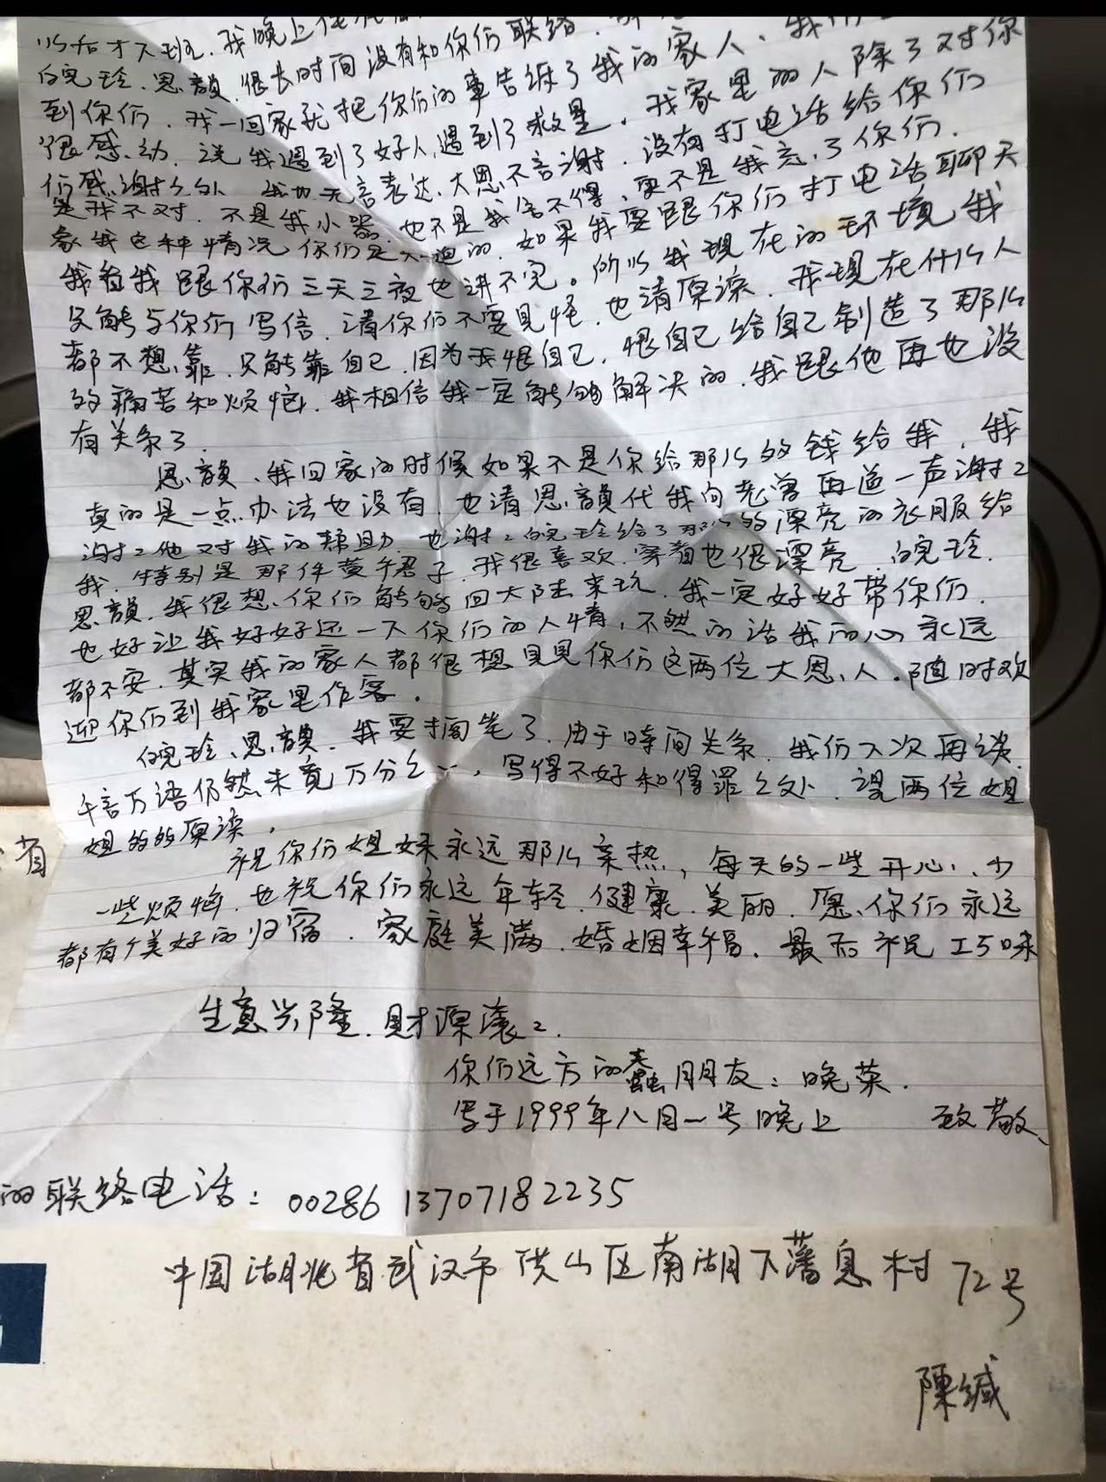 以后才下班，我晚上
婉玲、思韻，很长时间没有和你们联络，
到你们，我一回家就把你们的事告诉了我的家人，我们
很感动，说我遇到了好人，遇到了救星，我家里的人除了对你
们感谢之外 我也无言表达，大恩不言谢，没有打电话给你们
是我不对，不是我小器，也不是我舍不得，更不是我忘了你们，
象我这种情况你们是知道的，如果我要跟你们打电话聊天
我看我跟你们三天三夜也讲不完。所以我现在的环境我
只能与你们写信，请你们不要见怪，也请原谅，我现在什么人
都不想靠，只能靠自己，因为我恨自己，恨自己给自己制造了那么
的痛苦和烦恼，我相信我一定能够解决的，我跟他再也没
有关系了
思韻、我回家的时候如果不是你给那么的钱给我，我
真的是一点办法也没有，也请思韻代我向先曾再道一声谢2
谢2他对我的帮助，也谢2婉玲给了那么的漂亮的衣服给
我，特别是那件黄裙子，我很喜欢，穿着也很漂亮，婉玲、
思韻，我很想，你们能够回大陆来玩，我一定好好带你们，
也好让我好好还一下你们的人情，不然的话我的心永远
都不安，其实我的家人都很想见见你们这两位大恩人，随时欢
迎你们到我家里作客，
婉玲、思韻，我要搁笔了，由于時间关系，我们下次再谈，
千言万语仍然未竟万分之一，写得不好和得罪之处，望两位姐
姐的的原谅，
祝你们姐妹永远那么亲热，每天的一些开心，少
一些烦恼，也祝你们永远年轻、健康、美丽，愿你们永远
都有个美好的归宿，家庭美满，婚姻幸福，最后祝
生意兴隆，财源滚2、
你们远方的蠢朋友：晚菜、
写于1999年八月一号晚上 致敬、
的联络电话：00286 13707182235
省
中国湖北省武汉市洪山区南湖下藩息村72号
陳缄